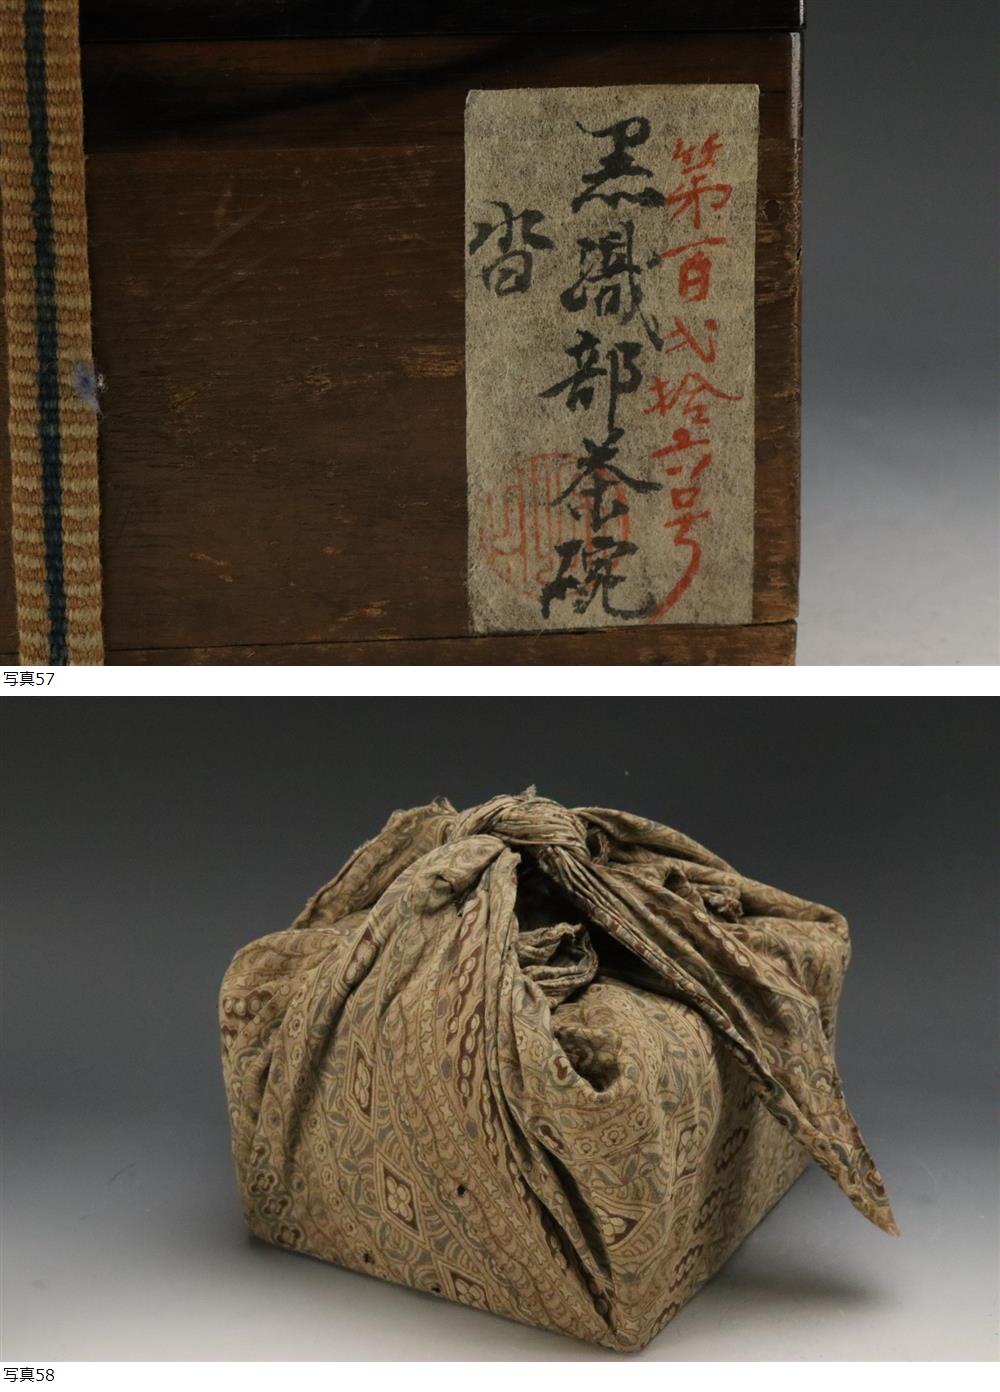 第百弐拾六号
黒織部茶碗
沓
写真57
写真58